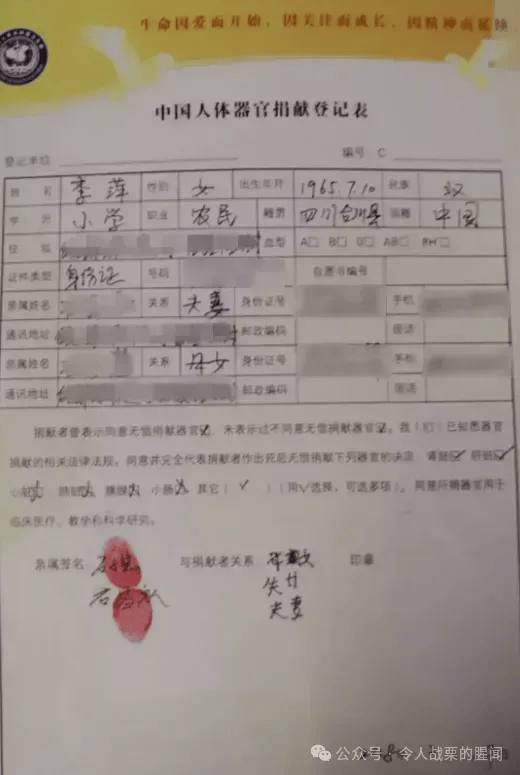 生命因爱而开始，因关注而成长，因精神而延续
中国人体器官捐献登记表
登记单位 编号：C
姓名 李萍 性别 女 出生年月 1965.7.10 民族 汉
学历 小学 职业 农民 籍贯 四川合川县 国籍 中国
住址 血型 A□ B□ O□ AB□ RH□
证件类型 身份证 号码 自愿书编号
亲属姓名 关系 夫妻 身份证号 手机
通讯地址 邮政编码 固话
亲属姓名 关系 母女 身份证号 手机
通讯地址 邮政编码 固话
捐献者曾表示同意无偿捐献器官☑，未表示过不同意无偿捐献器官☑。我（们）已知悉器官
捐献的相关法律法规，同意并完全代表捐献者作出死后无偿捐献下列器官的决定：肾脏☑ 肝脏☑
心脏 肺脏 胰腺 小肠 其它（ √ ）（用√选择，可选多项）。同意所捐器官用于
临床医疗、教学和科学研究。
亲属签名： 与捐献者关系 印章
夫妻
公众号·令人战栗的腥闻